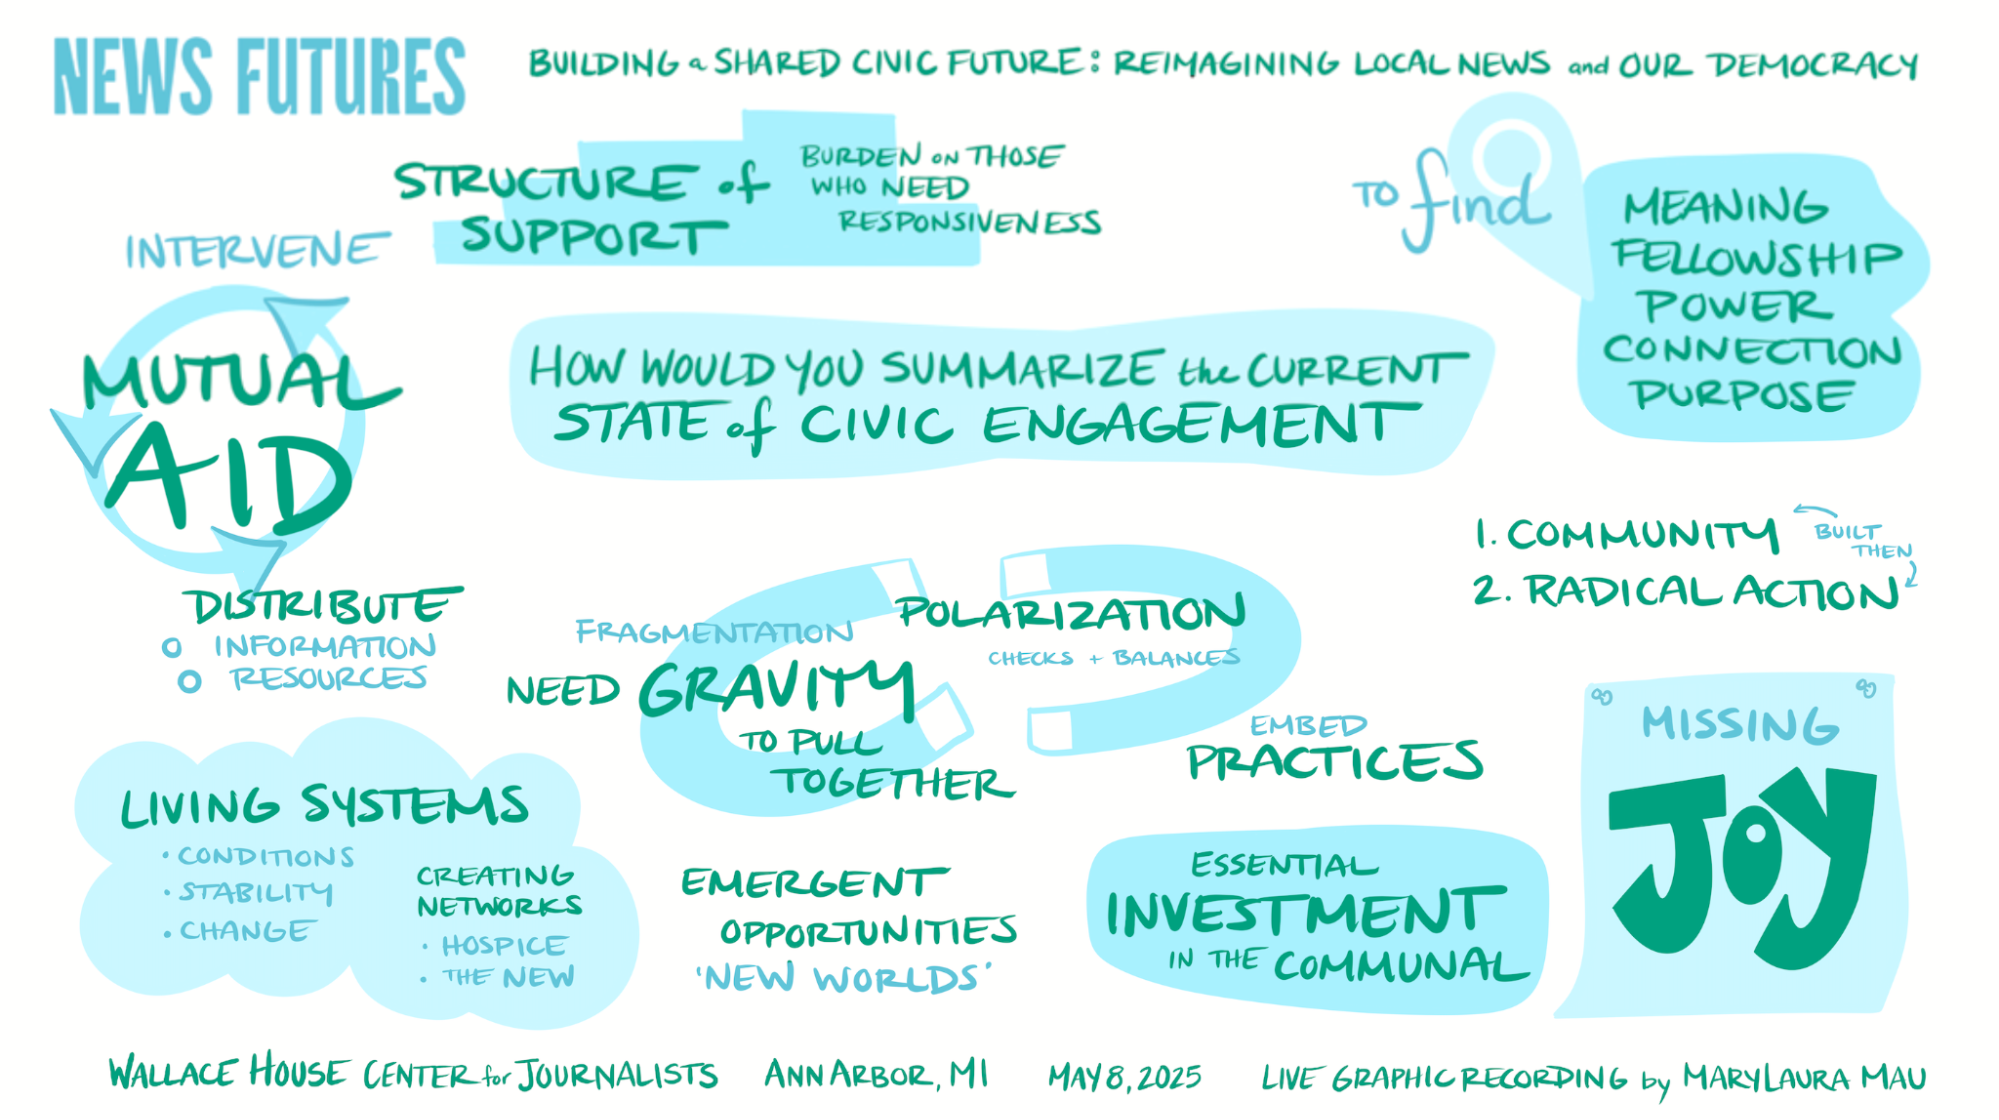 NEWS FUTURES
BUILDING a SHARED CIVIC FUTURE: REIMAGINING LOCAL NEWS and OUR DEMOCRACY
STRUCTURE of
SUPPORT
BURDEN ON THOSE
WHO NEED
RESPONSIVENESS
TO find
MEANING
FELLOWSHIP
POWER
CONNECTION
PURPOSE
INTERVENE
MUTUAL
AID
DISTRIBUTE
INFORMATION
RESOURCES
HOW WOULD YOU SUMMARIZE the CURRENT
STATE of CIVIC ENGAGEMENT
1. COMMUNITY
BUILT
THEN
2. RADICAL ACTION
FRAGMENTATION
NEED GRAVITY
TO PULL
TOGETHER
POLARIZATION
CHECKS + BALANCES
EMBED
PRACTICES
MISSING
JOY
LIVING SYSTEMS
• CONDITIONS
• STABILITY
• CHANGE
CREATING
NETWORKS
• HOSPICE
• THE NEW
EMERGENT
OPPORTUNITIES
'NEW WORLDS'
ESSENTIAL
INVESTMENT
IN THE COMMUNAL
WALLACE HOUSE CENTER for JOURNALISTS ANN ARBOR, MI MAY 8, 2025 LIVE GRAPHIC RECORDING by MARYLAURA MAU